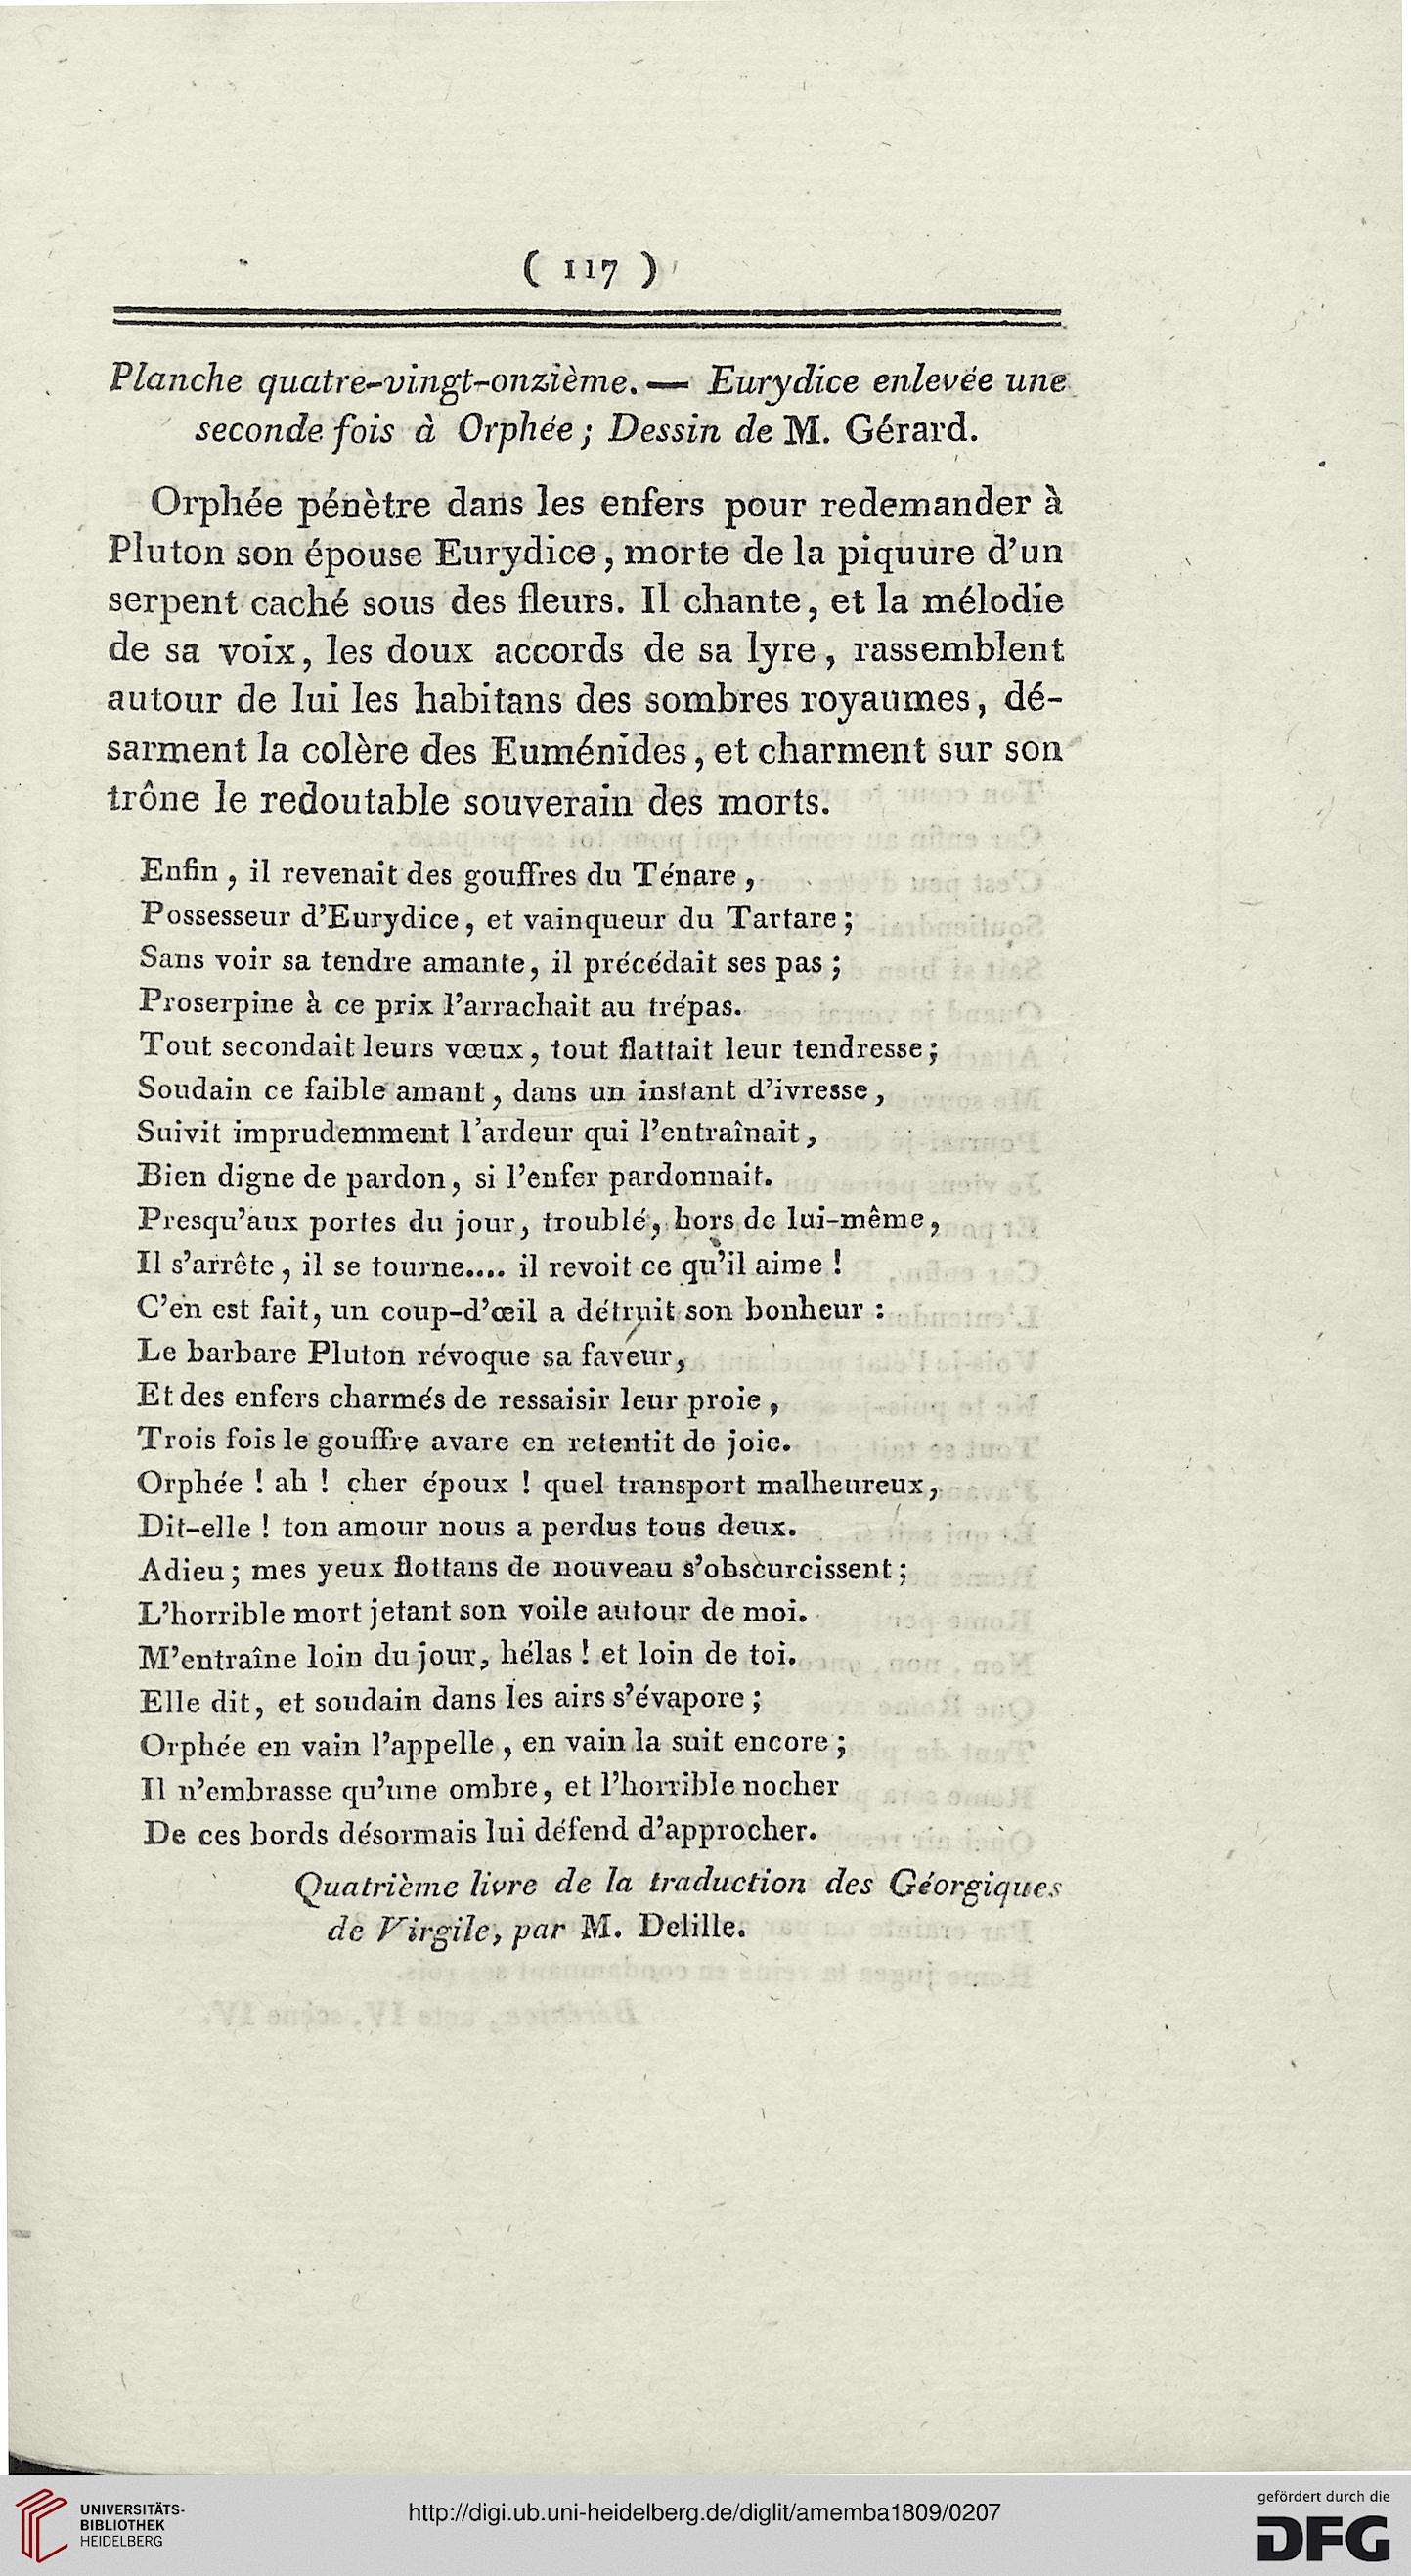 ( 117 )
Planche quatre-vingt-onzième. — Eurydice enlevée une
seconde fois à Orphée ; Dessin de M. Gérard.
Orphée pénètre dans les enfers pour redemander à
Pluton son épouse Eurydice, morte de la piquure d'un
serpent caché sous des fleurs. Il chante, et la mélodie
de sa voix, les doux accords de sa lyre, rassemblent
autour de lui les habitans des sombres royaumes, dé-
sarment la colère des Euménides, et charment sur son
trône le redoutable souverain des morts.
Enfin, il revenait des gouffres du Ténare,
Possesseur d'Eurydice, et vainqueur du Tartare ;
Sans voir sa tendre amante, il précédait ses pas ;
Proserpine à ce prix l'arrachait au trépas.
Tout secondait leurs vœux, tout flattait leur tendresse ;
Soudain ce faible amant, dans un instant d'ivresse,
Suivit imprudemment l'ardeur qui l'entraînait,
Bien digne de pardon, si l'enfer pardonnait.
Presqu'aux portes du jour, troublé, hors de lui-même,
Il s'arrête, il se tourne.... il revoit ce qu'il aime !
C'en est fait, un coup-d'œil a détruit son bonheur :
Le barbare Pluton révoque sa faveur,
Et des enfers charmés de ressaisir leur proie,
Trois fois le gouffre avare en retentit de joie.
Orphée ! ah ! cher époux ! quel transport malheureux,
Dit-elle ! ton amour nous a perdus tous deux.
Adieu ; mes yeux flottans de nouveau s'obscurcissent ;
L'horrible mort jetant son voile autour de moi.
M'entraîne loin du jour, hélas ! et loin de toi.
Elle dit, et soudain dans les airs s'évapore ;
Orphée en vain l'appelle, en vain la suit encore ;
Il n'embrasse qu'une ombre, et l'horrible nocher
De ces bords désormais lui défend d'approcher.
Quatrième livre de la traduction des Géorgiques
de Virgile, par M. Delille.
UNIVERSITÄTS-
BIBLIOTHEK
HEIDELBERG
http://digi.ub.uni-heidelberg.de/diglit/amemba1809/0207
gefördert durch die
DFG